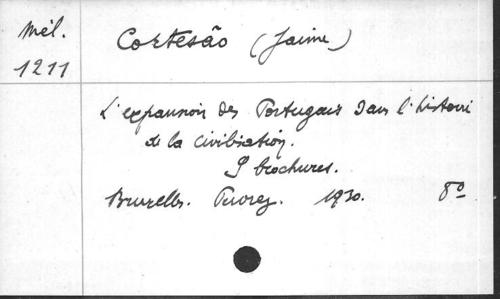 Mél.
1211
Cortesão (Jaime)
L'expansion des Portugais dans l'histoire
de la civilisation.
brochures.
Bruxelles. 1930. 8º